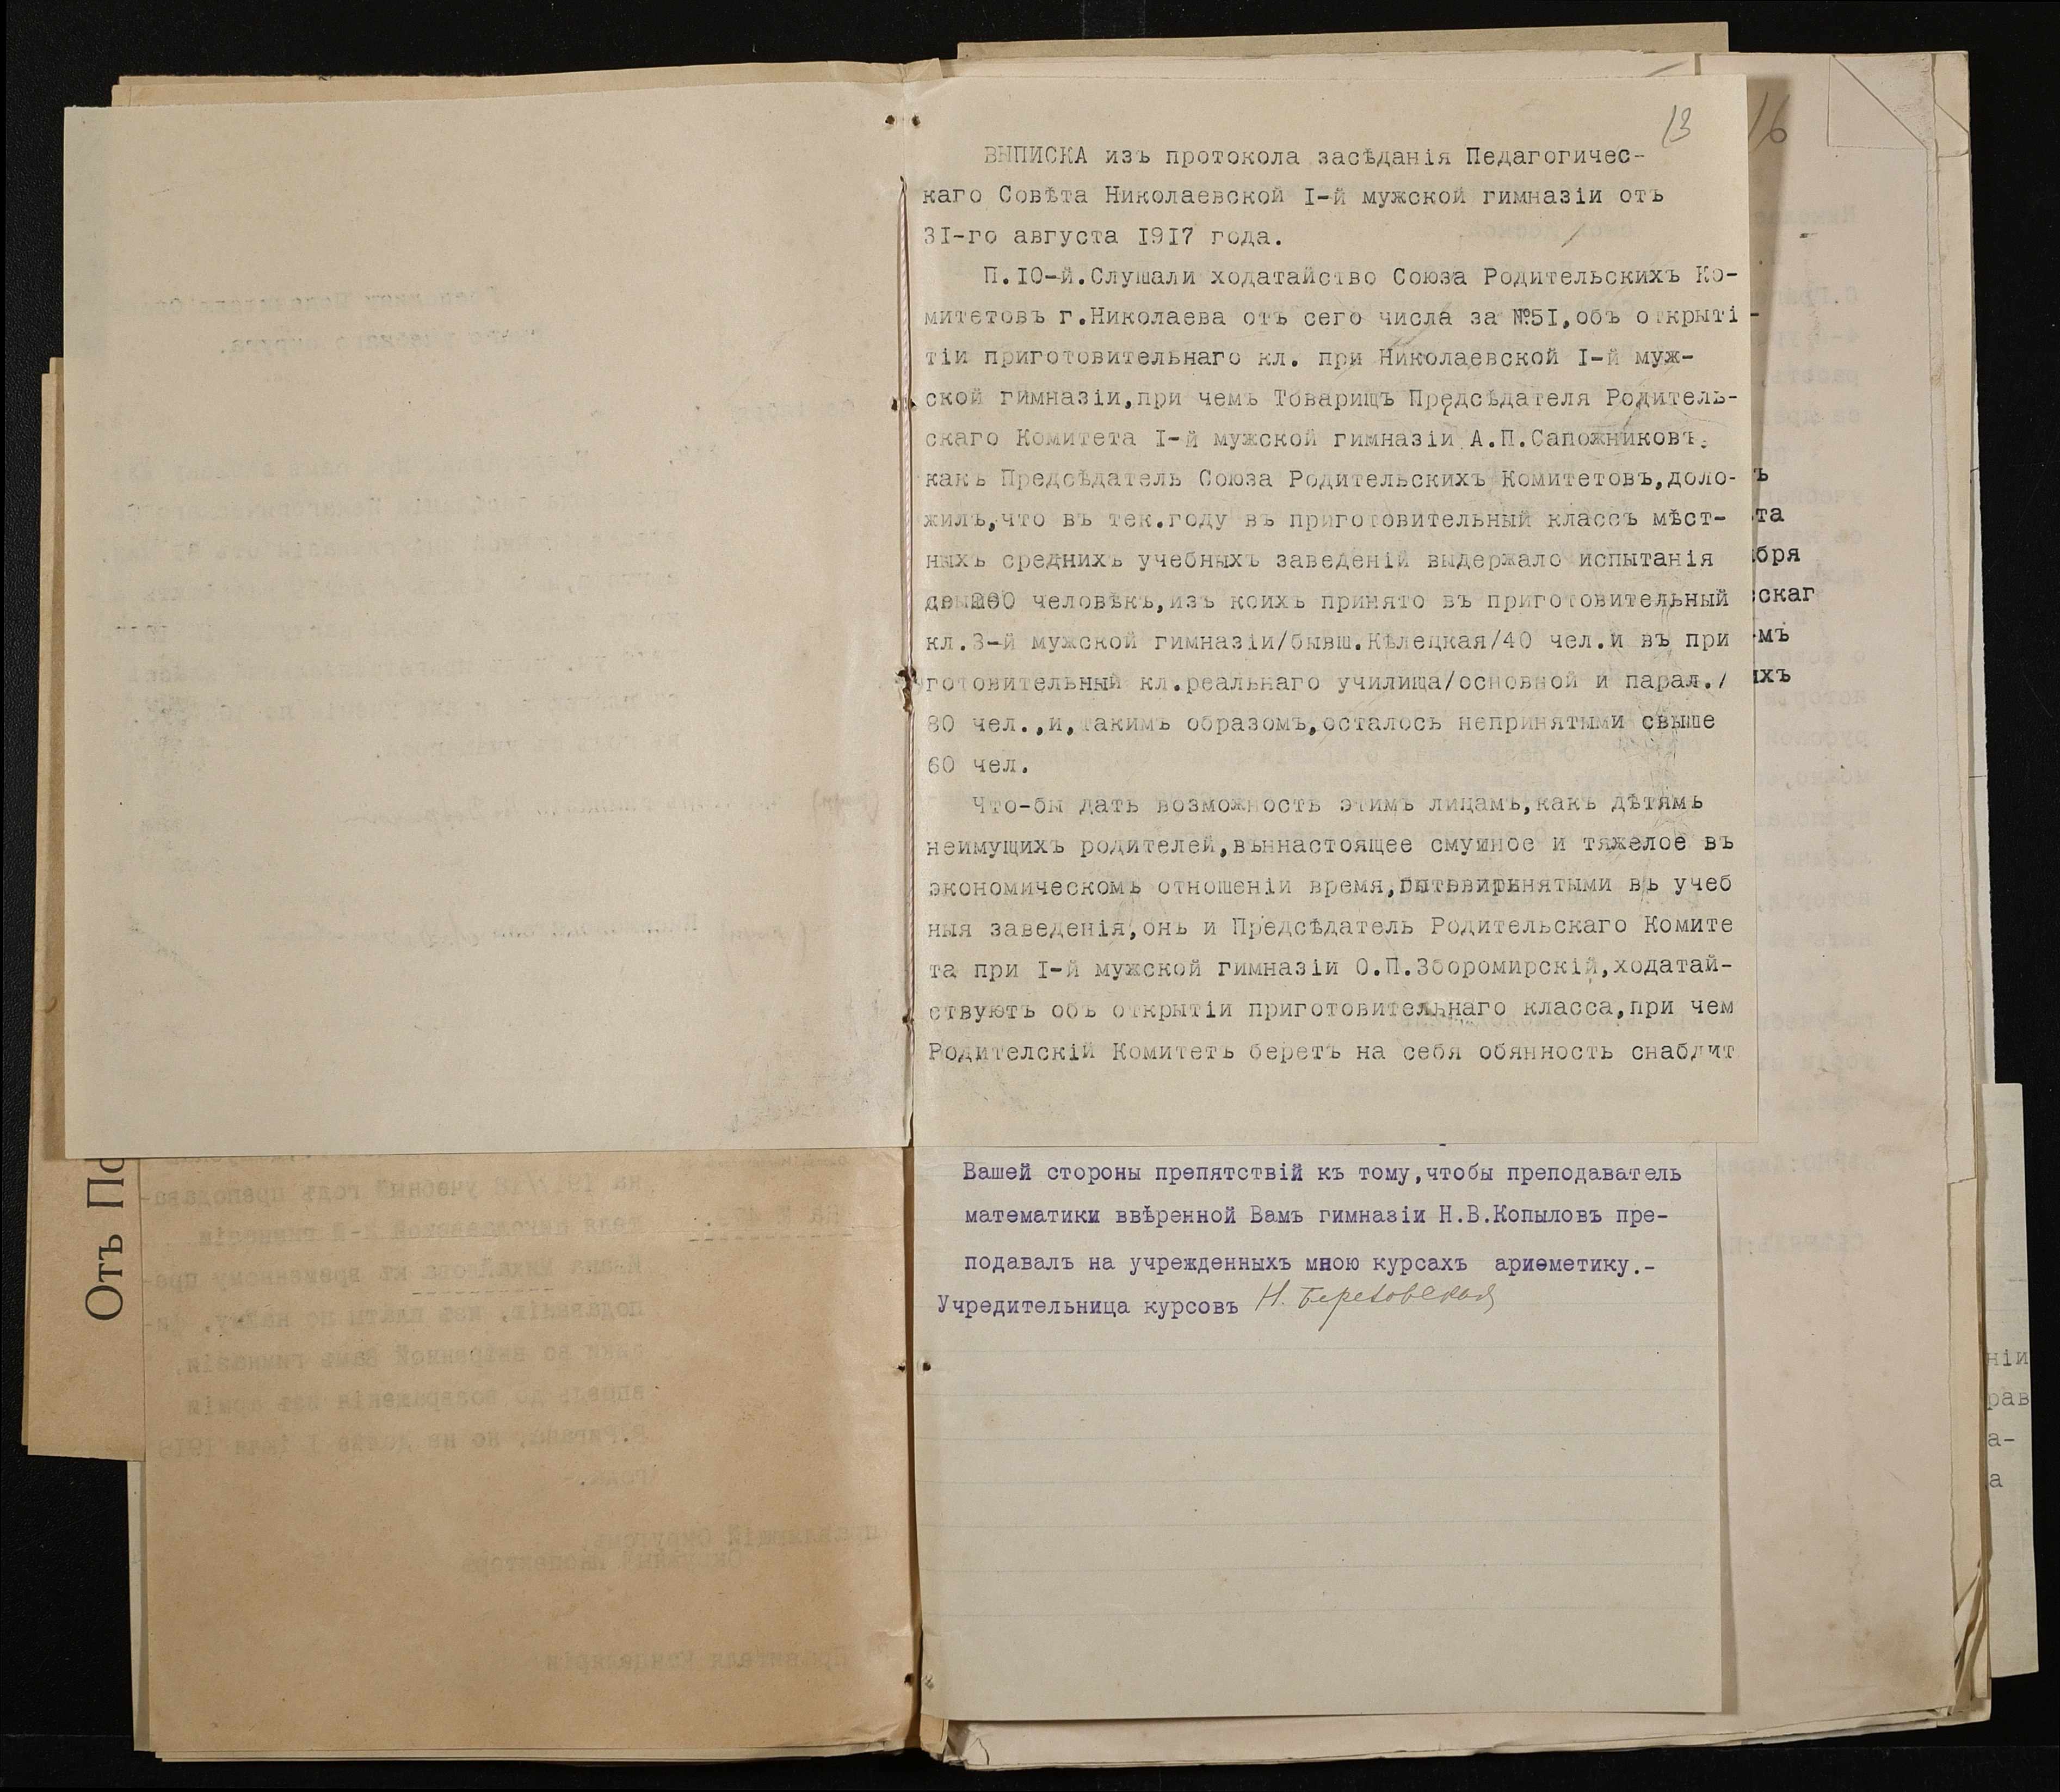 13
ВЫПИСКА изъ протокола засѣданія Педагогичес-
каго Совѣта Николаевской I-й мужской гимназіи отъ
3I-го августа I9I7 года.
П.IO-й.Слушали ходатайство Союза Родительскихъ Ко-
митетовъ г.Николаева отъ сего числа за №5I,объ открыті-
тіи приготовительнаго кл. при Николаевской I-й муж-
ской гимназіи,при чемъ Товарищъ Предсѣдателя Родитель-
скаго Комитета I-й мужской гимназіи А.П.Сапожниковъ,
какъ Предсѣдатель Союза Родительскихъ Комитетовъ,доло-
жилъ,что въ тек.году въ приготовительный классъ мѣст-
ныхъ среднихъ учебныхъ заведеній выдержало испытанія
человѣкъ,изъ коихъ принято въ приготовительный
кл.3-й мужской гимназіи/бывш.Кѣлецкая/40 чел.и въ при
готовительный кл.реальнаго училища/основной и парал./
80 чел.,и,такимъ образомъ,осталось непринятыми свыше
60 чел.
Что-бы дать возможность этимъ лицамъ,какъ дѣтямъ
неимущихъ родителей,въннастоящее смушное и тяжелое въ
экономическомъ отношеніи время, въ учеб
ныя заведенія,онъ и Предсѣдатель Родительскаго Комите
та при I-й мужской гимназіи О.П.Зборомирскій,ходатай-
ствуютъ объ открытіи приготовительнаго класса,при чем
Родителскій Комитетъ беретъ на себя обянность снабдит
Вашей стороны препятствій къ тому,чтобы преподаватель
математики ввѣренной Вамъ гимназіи Н.В.Копыловъ пре-
подавалъ на учрежденныхъ мною курсахъ ариѳметику.-
Учредительница курсовъ Н. Березовская
16
ъ
та
бря
скаг
мъ
ихъ
Отъ По
ніи
рав
а-
а